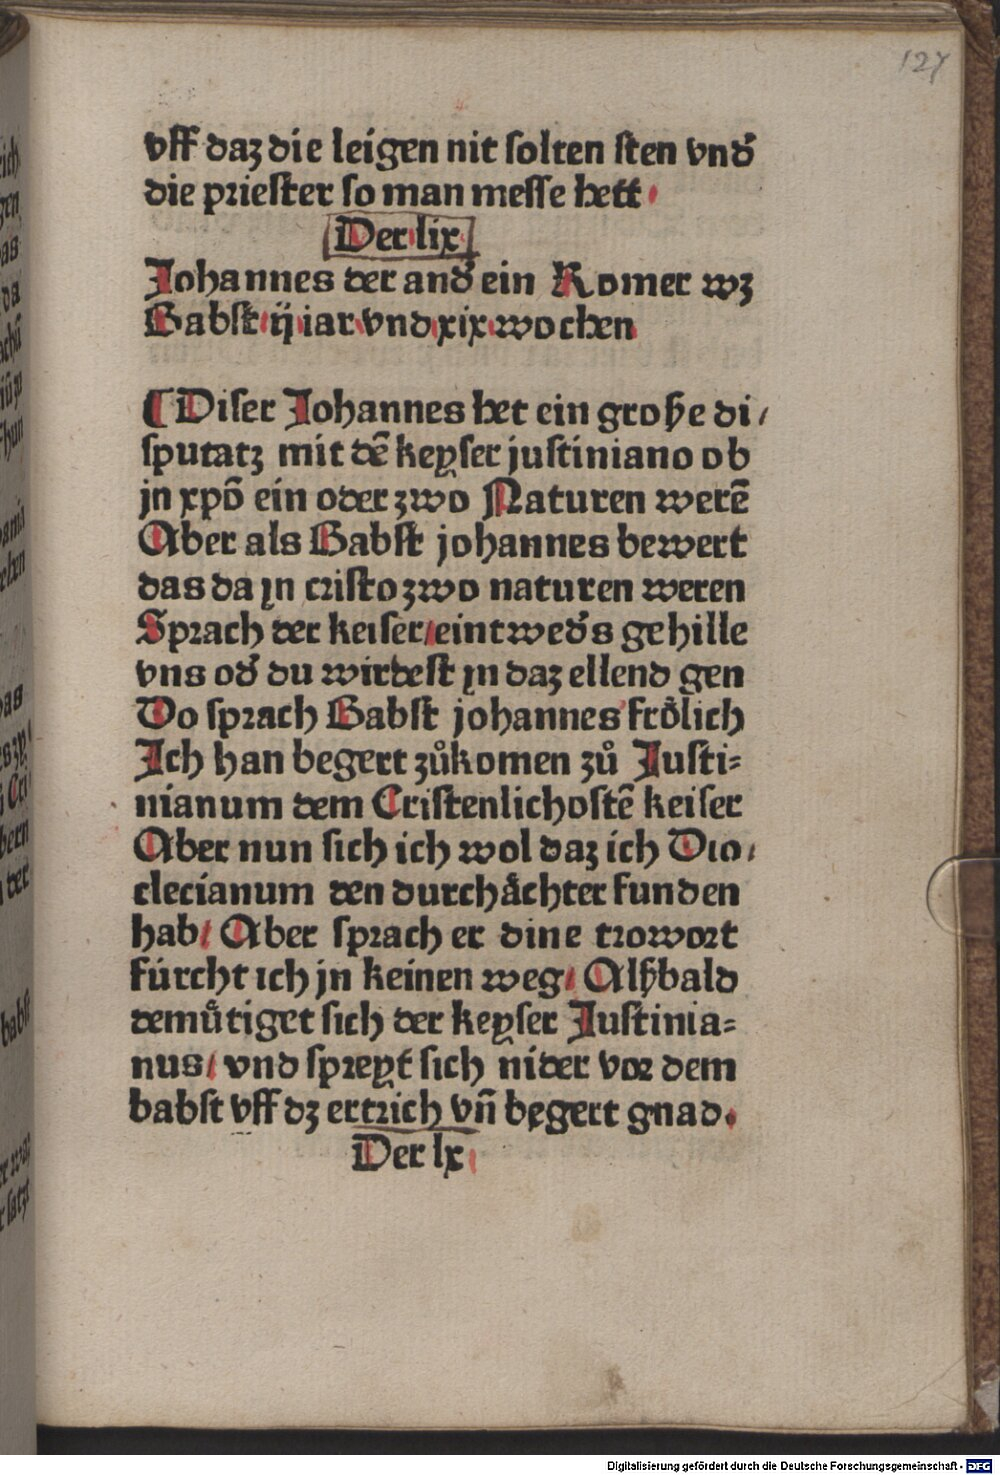 127
vff daz die leigen nit solten sten vnđ
die priester so man messe hett
Der lix
Johannes der anđ ein Romer wz
Babst ij iar vnd xix wochen
¶ Diser Johannes het ein große di/
sputatz mit dē keyser justiniano ob
jn xpō ein oder zwo Naturen werē
Aber als Babst johannes bewert
das da jn cristo zwo naturen weren
Sprach der keiser/ eintweđs gehille
vns ođ du wirdest jn daz ellend gen
Do sprach Babst johannes frölich
Ich han begert zůkomen zů Justi=
nianum dem Cristenlichostē keiser
Aber nun sich ich wol daz ich Dio/
clecianum den durchåchter funden
hab/ Aber sprach er dine trowort
fúrcht ich jn keinen weg/ Alßbald
demůtiget sich der keyser Justinia=
nus/ vnd spreyt sich nider vor dem
babst vff dz ertrich vñ begert gnad.
Der lx
Digitalisierung gefördert durch die Deutsche Forschungsgemeinschaft - DFG